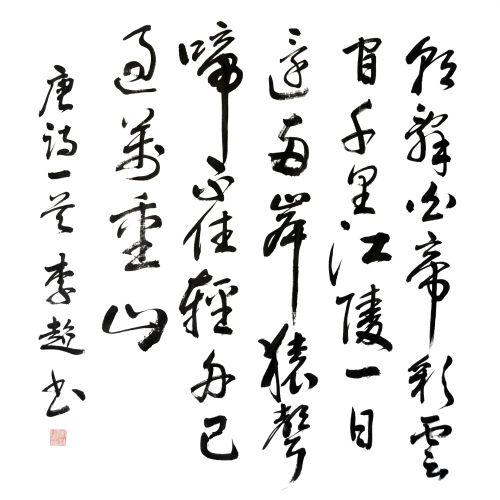 朝辭白帝彩雲
間千里江陵一日
還兩岸猿聲
啼不住輕舟已
過萬重山
唐詩一首 李超书